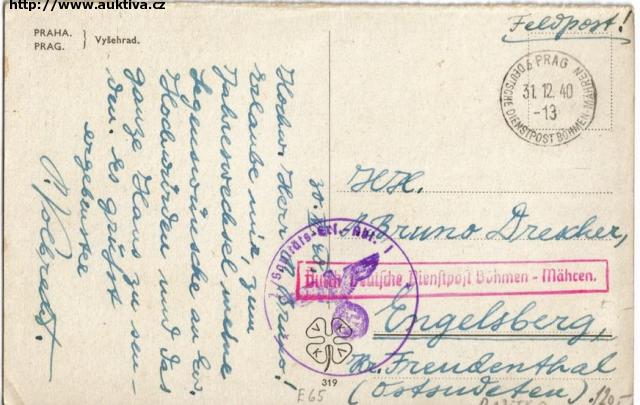 http://www.auktiva.cz
PRAHA.
PRAG.
Vyšehrad.
Feldpost!
PRAG
31.12.40
-13
DEUTSCHE DIENSTPOST BÖHMEN-MÄHREN
30.
Hochw. Herr P. Bruno!
Erlaube mir, zum
Jahreswechsel meine
Segenswünsche an Ew.
Hochwürden und das
ganze Haus zu sen-
den. Es grüßt
ergebenste
HH.
P. Bruno Drescher,
Engelsberg,
Kr. Freudenthal
(Ostsudeten).
Durch Deutsche Dienstpost Böhmen - Mähren.
Sanitäts-Ers. Abt.
V K V K
319
E65
120,-